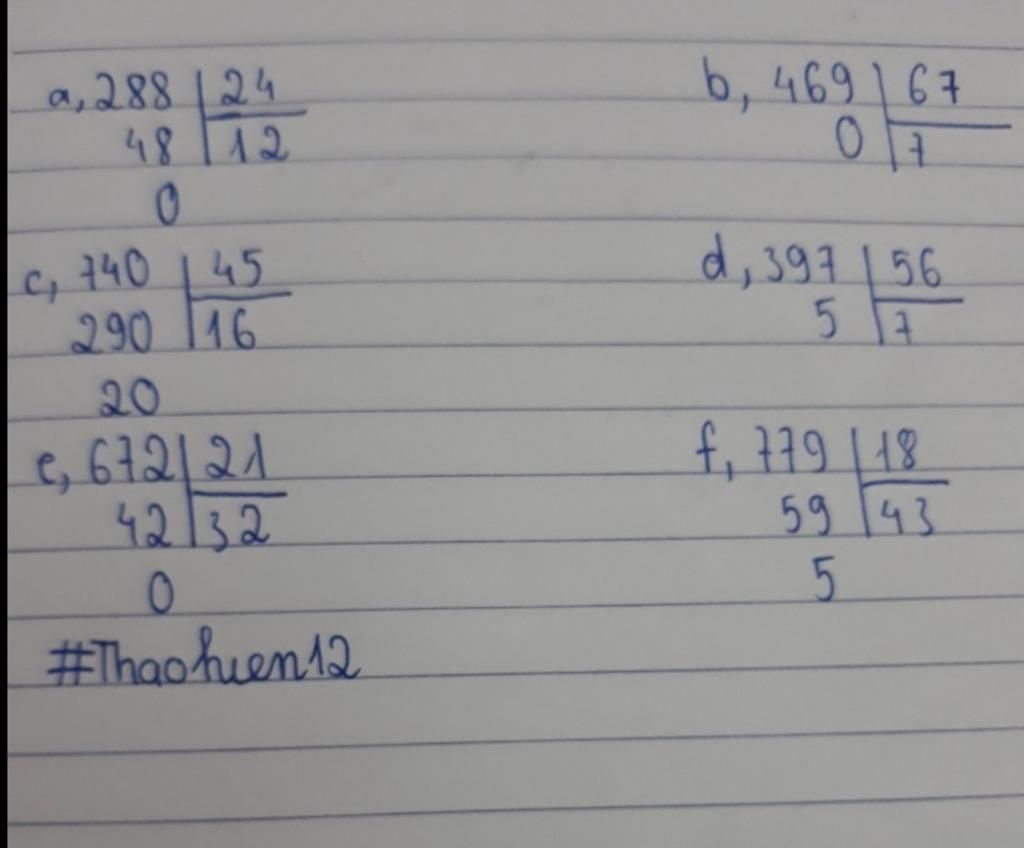 a, 288 | 24
48 | 12
0
b, 469 | 67
0 | 7
c, 740 | 45
290 | 16
20
d, 397 | 56
5 | 7
e, 672 | 21
42 | 32
0
f, 779 | 18
59 | 43
5
#Thaohuen12